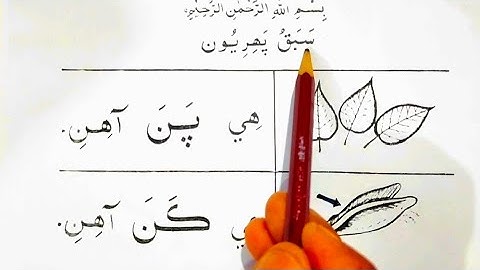 بِسْمِ اللهِ الرَّحْمٰنِ الرَّحِيْمِ،
سَبَقُ پَهِرِيُون
هِي پَنَ آهِنِ.
هِي ڪَنَ آهِنِ.